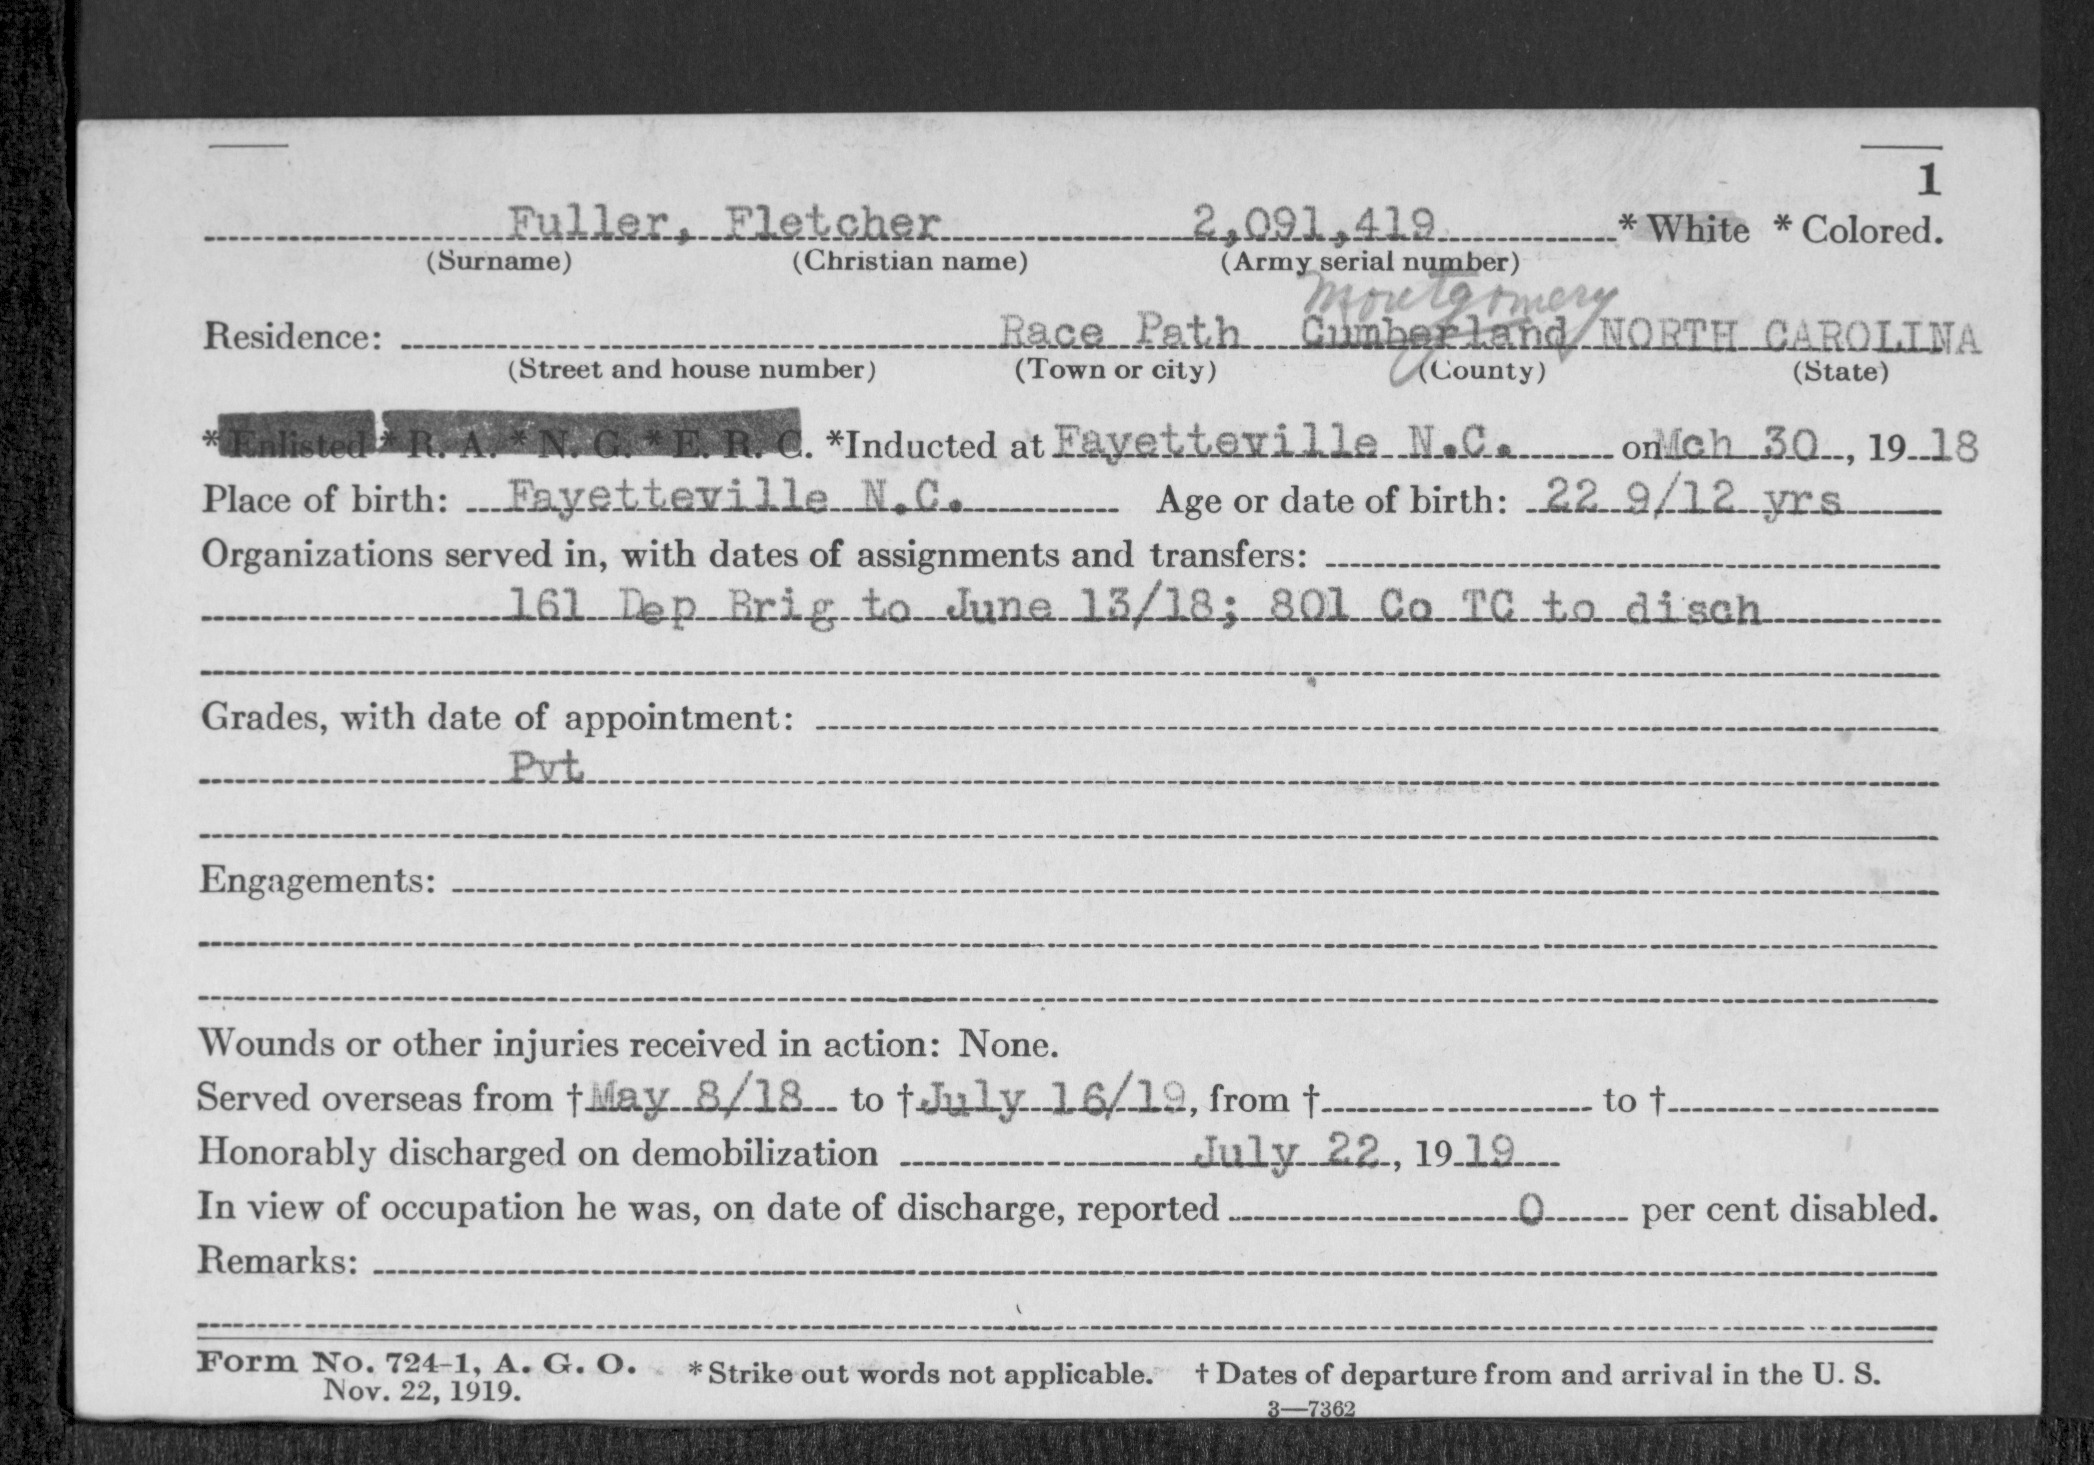 1
Fuller, Fletcher 2,091,419 * White * Colored.
(Surname) (Christian name) (Army serial number)
Montgomery
Residence: Race Path Cumberland NORTH CAROLINA
(Street and house number) (Town or city) (County) (State)
* Enlisted * R. A. * N. G. * E. R. C. *Inducted at Fayetteville N.C. on Mch 30, 19 18
Place of birth: Fayetteville N.C. Age or date of birth: 22 9/12 yrs
Organizations served in, with dates of assignments and transfers:
161 Dep Brig to June 13/18; 801 Co TC to disch
Grades, with date of appointment:
Pvt
Engagements:
Wounds or other injuries received in action: None.
Served overseas from † May 8/18 to † July 16/19, from † to †
Honorably discharged on demobilization July 22, 19 19
In view of occupation he was, on date of discharge, reported 0 per cent disabled.
Remarks:
Form No. 724-1, A. G. O. * Strike out words not applicable. † Dates of departure from and arrival in the U. S.
Nov. 22, 1919.
3—7362